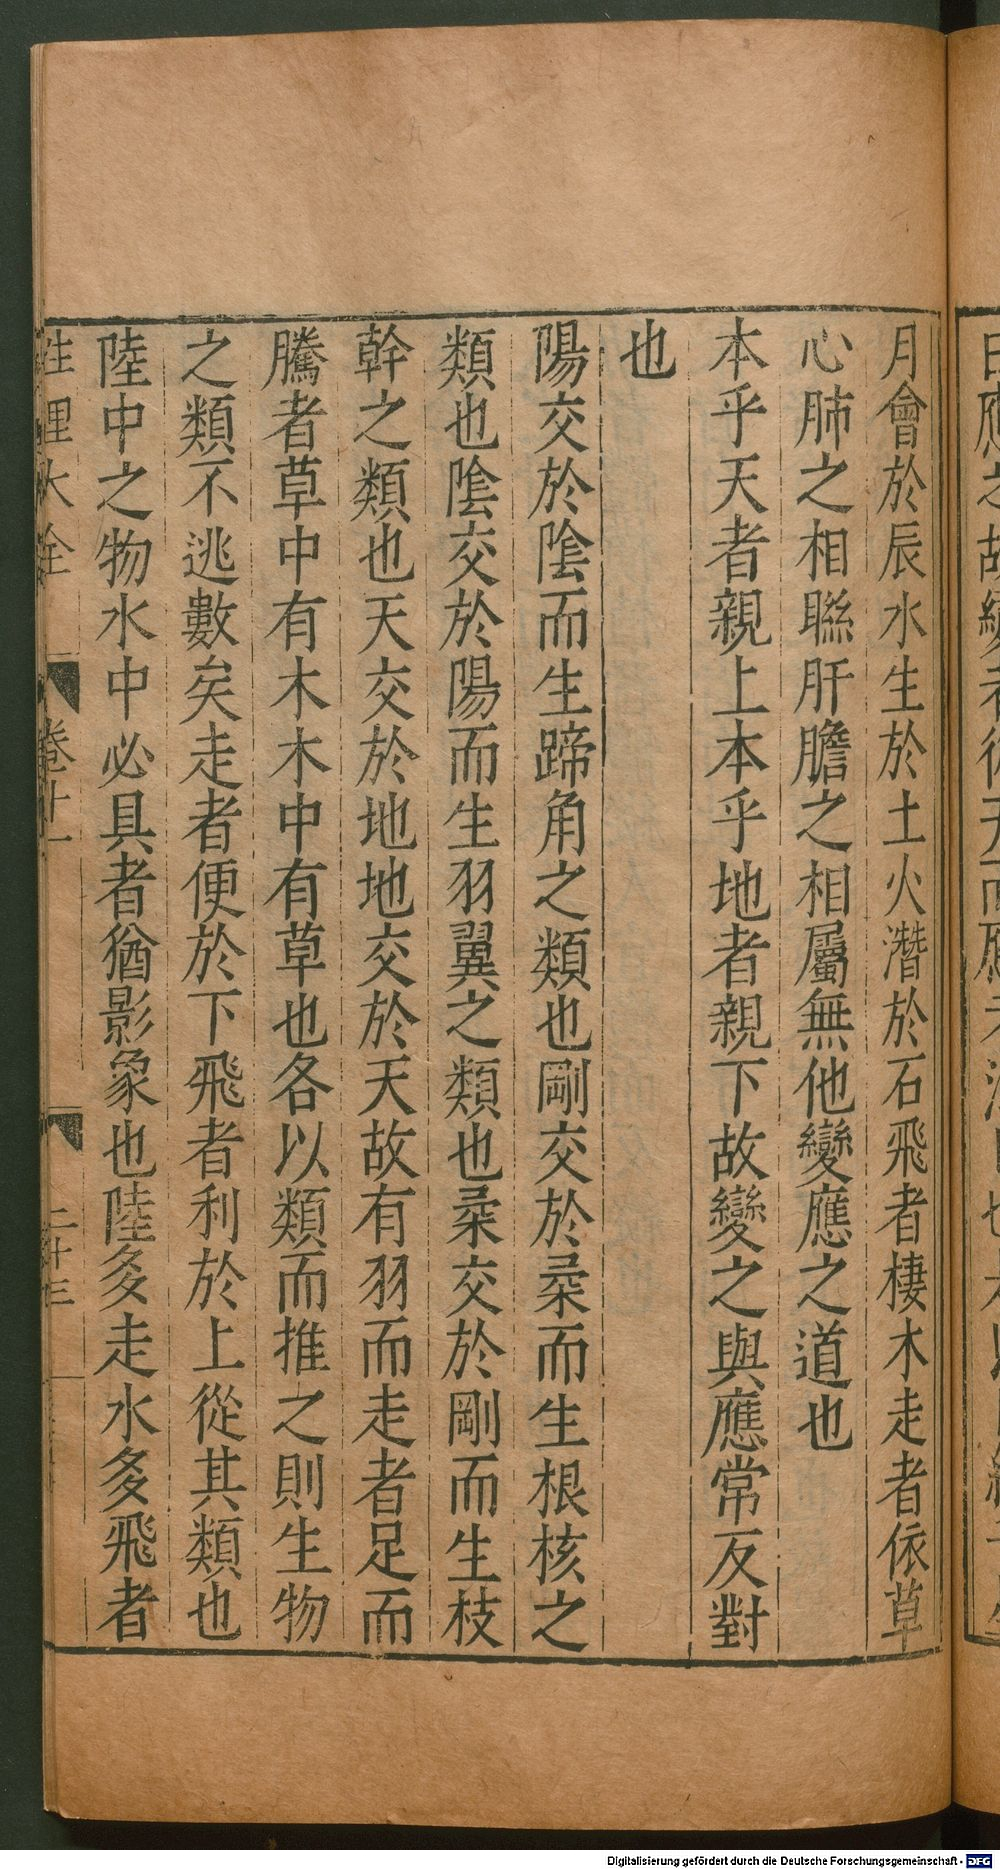 月會於辰水生於土火潛於石飛者棲木走者依草
心肺之相聯肝膽之相屬無他變應之道也
本乎天者親上本乎地者親下故變之與應常反對
也
陽交於陰而生蹄角之類也剛交於柔而生根核之
類也陰交於陽而生羽翼之類也柔交於剛而生枝
幹之類也天交於地地交於天故有羽而走者足而
騰者草中有木木中有草也各以類而推之則生物
之類不逃數矣走者便於下飛者利於上從其類也
陸中之物水中必具者猶影象也陸多走水多飛者
性理大全 卷十一 二十三
Digitalisierung gefördert durch die Deutsche Forschungsgemeinschaft - DFG